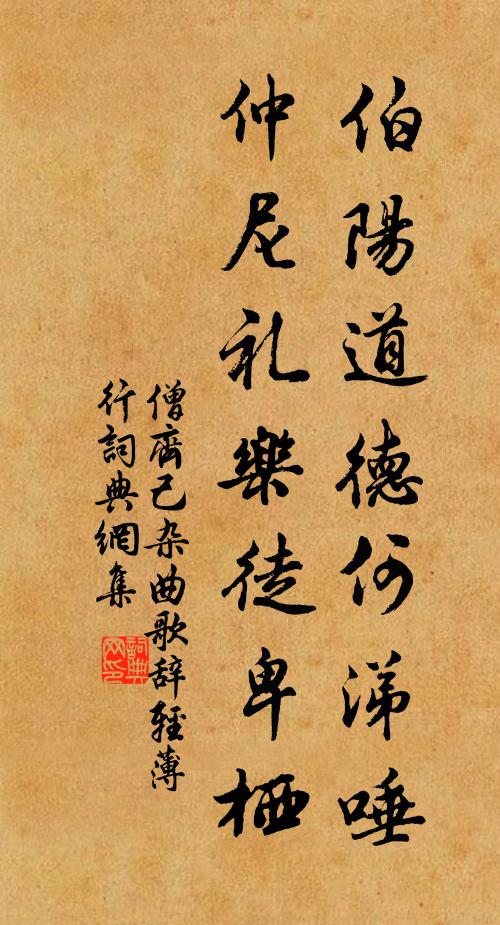 伯陽道德何涕唾
仲尼礼樂徒卑栖
僧齊己杂曲歌辞輕薄
行詞典網集
詞典网印